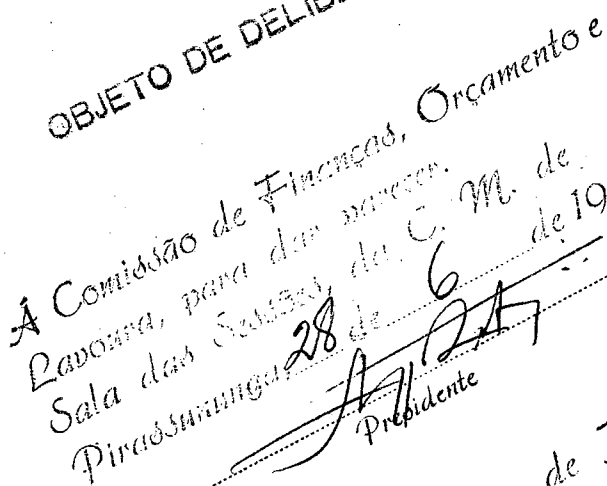 OBJETO DE
Á Comissão de Finanças, Orçamento e
Lavoura, para dar parecer.
Sala das Sessões, da C. M. de
Pirassununga, 28 de 6 de 19
Presidente
de